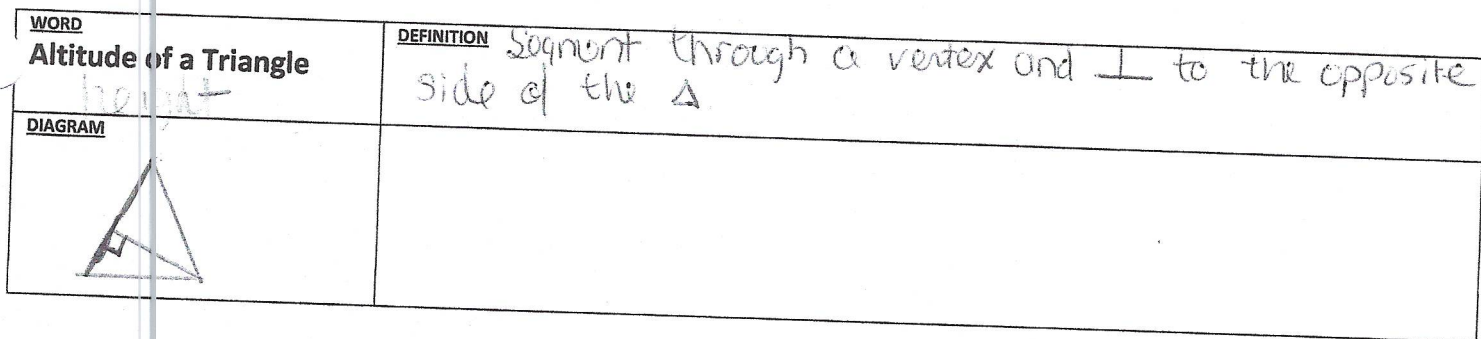 WORD
Altitude of a Triangle
height
DEFINITION Segment through a vertex and ⊥ to the opposite
side of the Δ
DIAGRAM